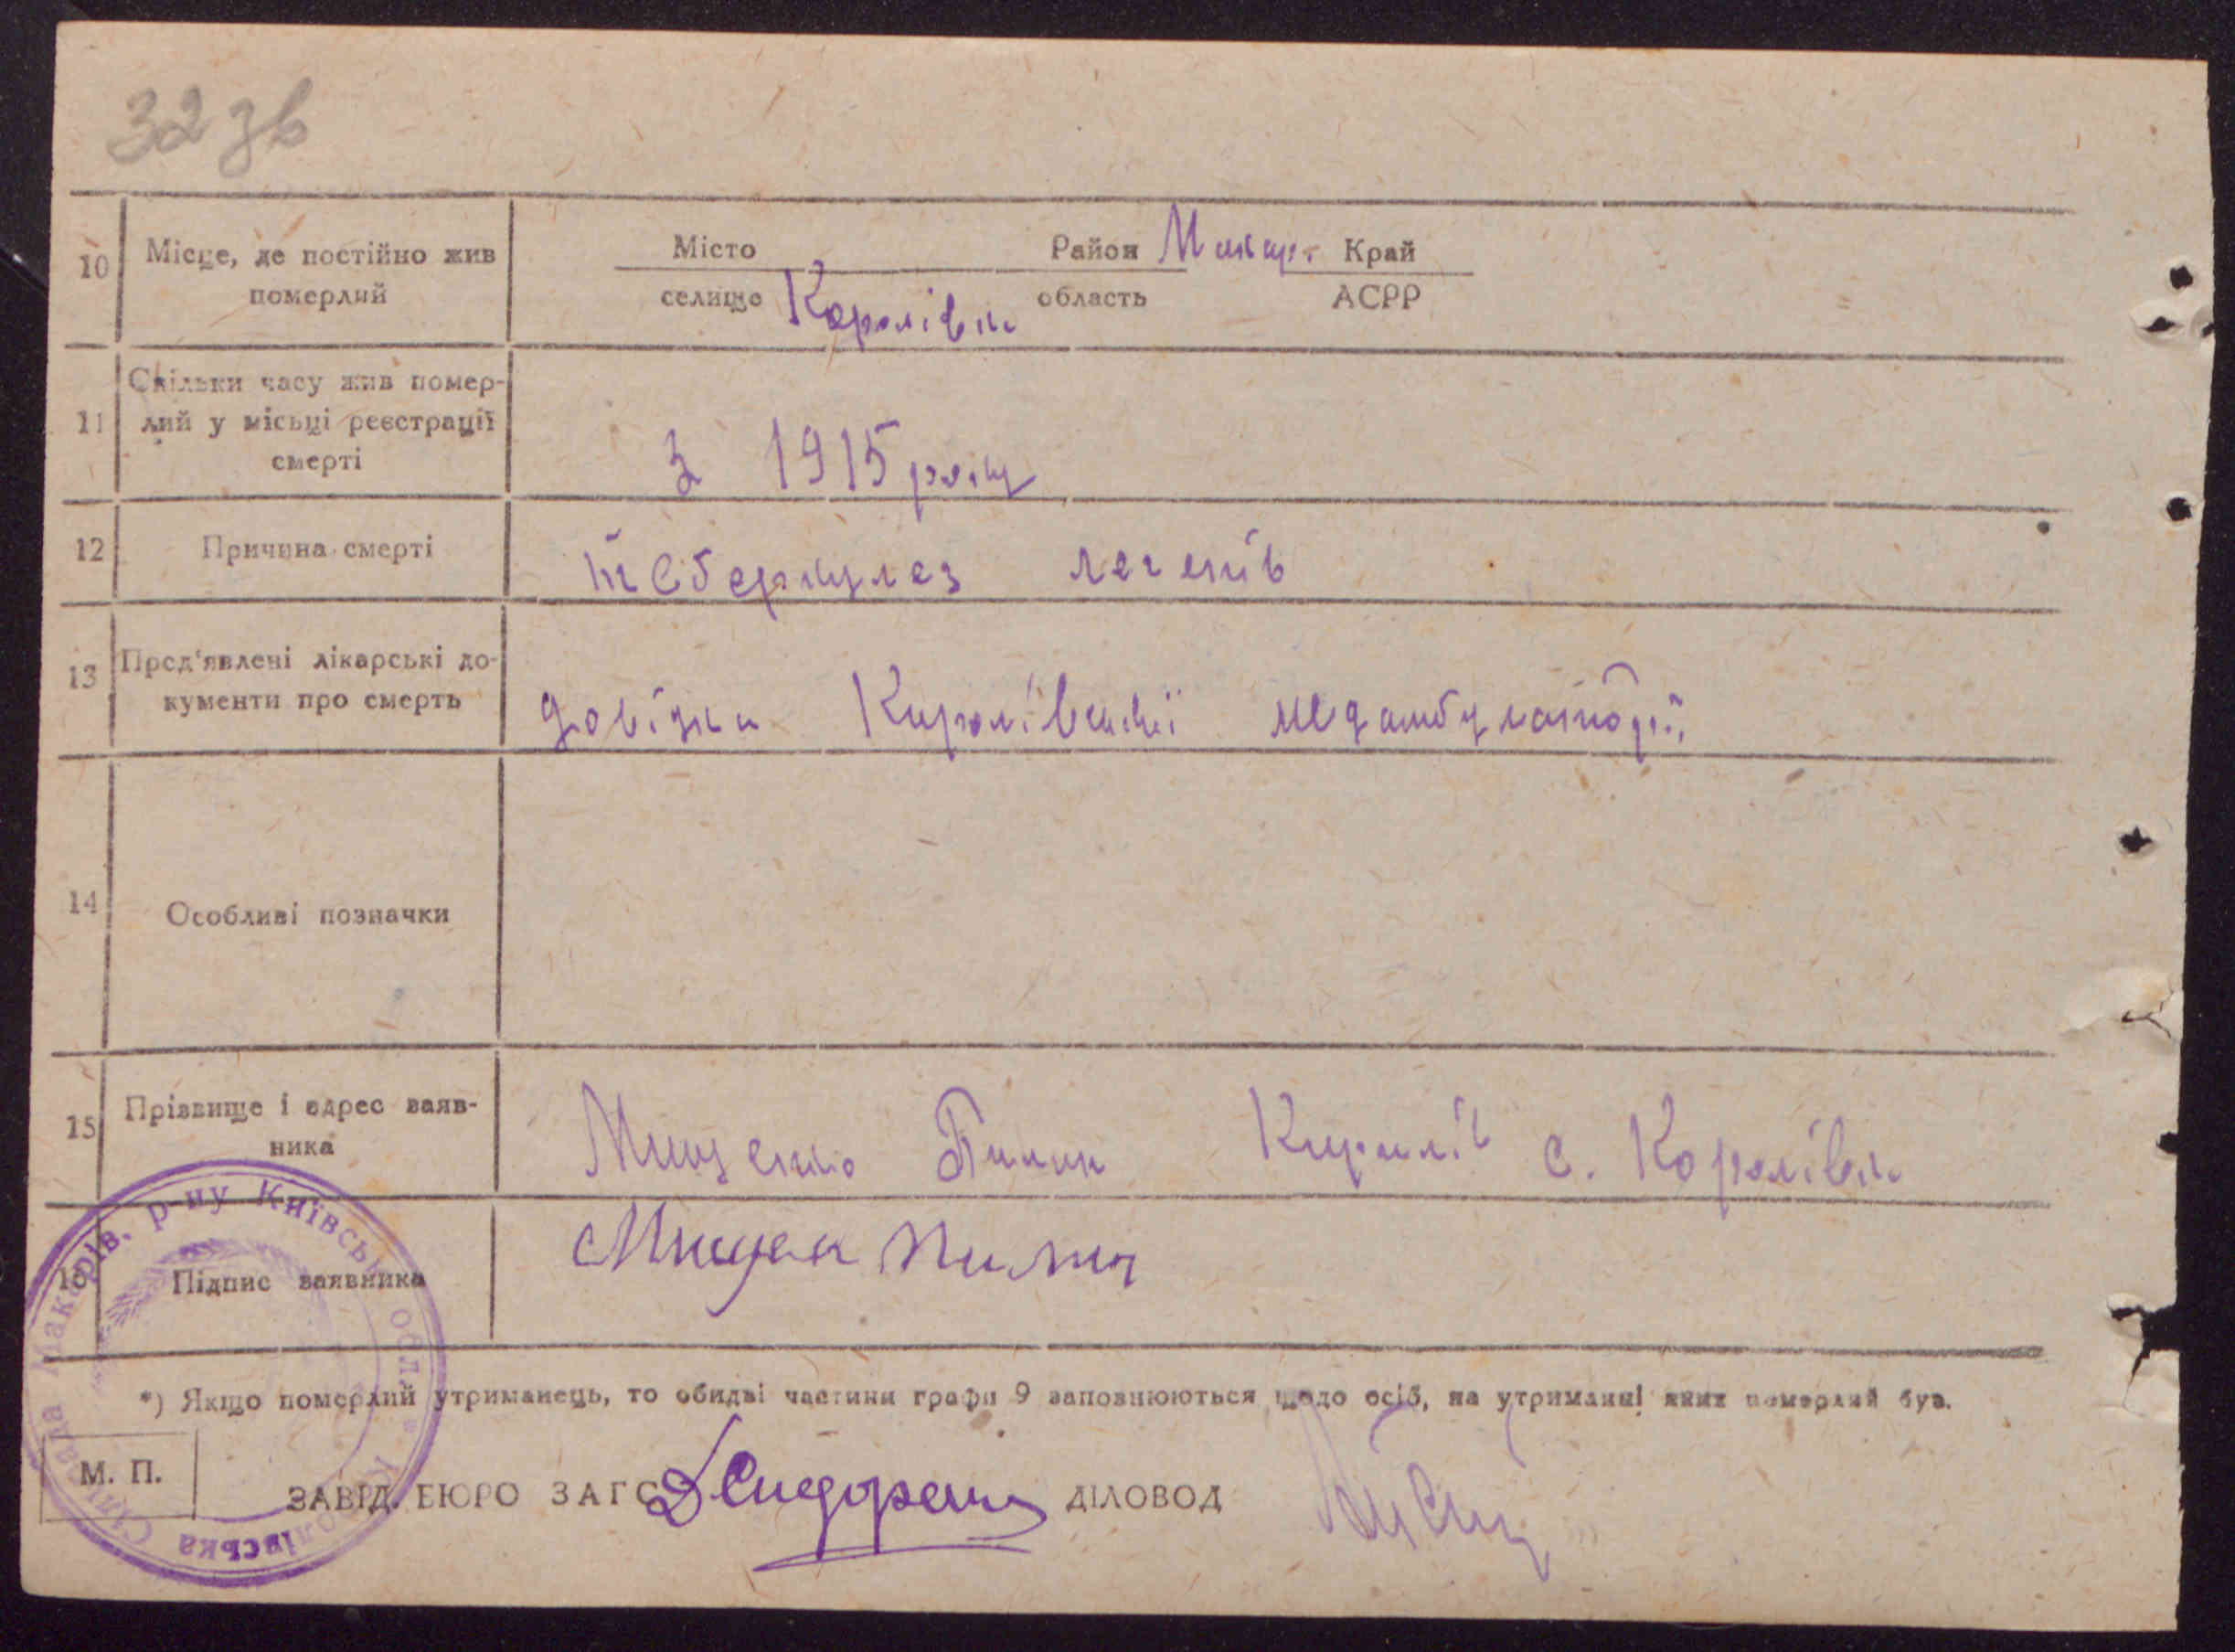 32 зв
10 Місце, де постійно жив померлий
Місто Район Макар. Край
селище Королівка область АСРР
11 Скільки часу жив помер-
лий у місьці реєстрації
смерті
З 1915 року
12 Причина смерті
тєберкулез легенів
13 Пред'явлені лікарські до-
кументи про смерть
довідка Королівської медамбулаторії
14 Особливі позначки
15 Прізвище і адрес заяв-
ника
Мищенко Пилип с. Королівка
16 Підпис заявника
Мищен Пилип
*) Якщо померлий утриманець, то обидві частини графи 9 заповнюються щодо осіб, на утриманні яких померлий був.
М. П.
ЗАВІД. БЮРО ЗАГС ДІЛОВОД
Королівська Сільрада Макарів. р-ну Київськ. обл.